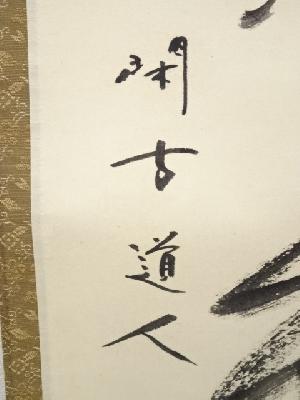 閑古道人